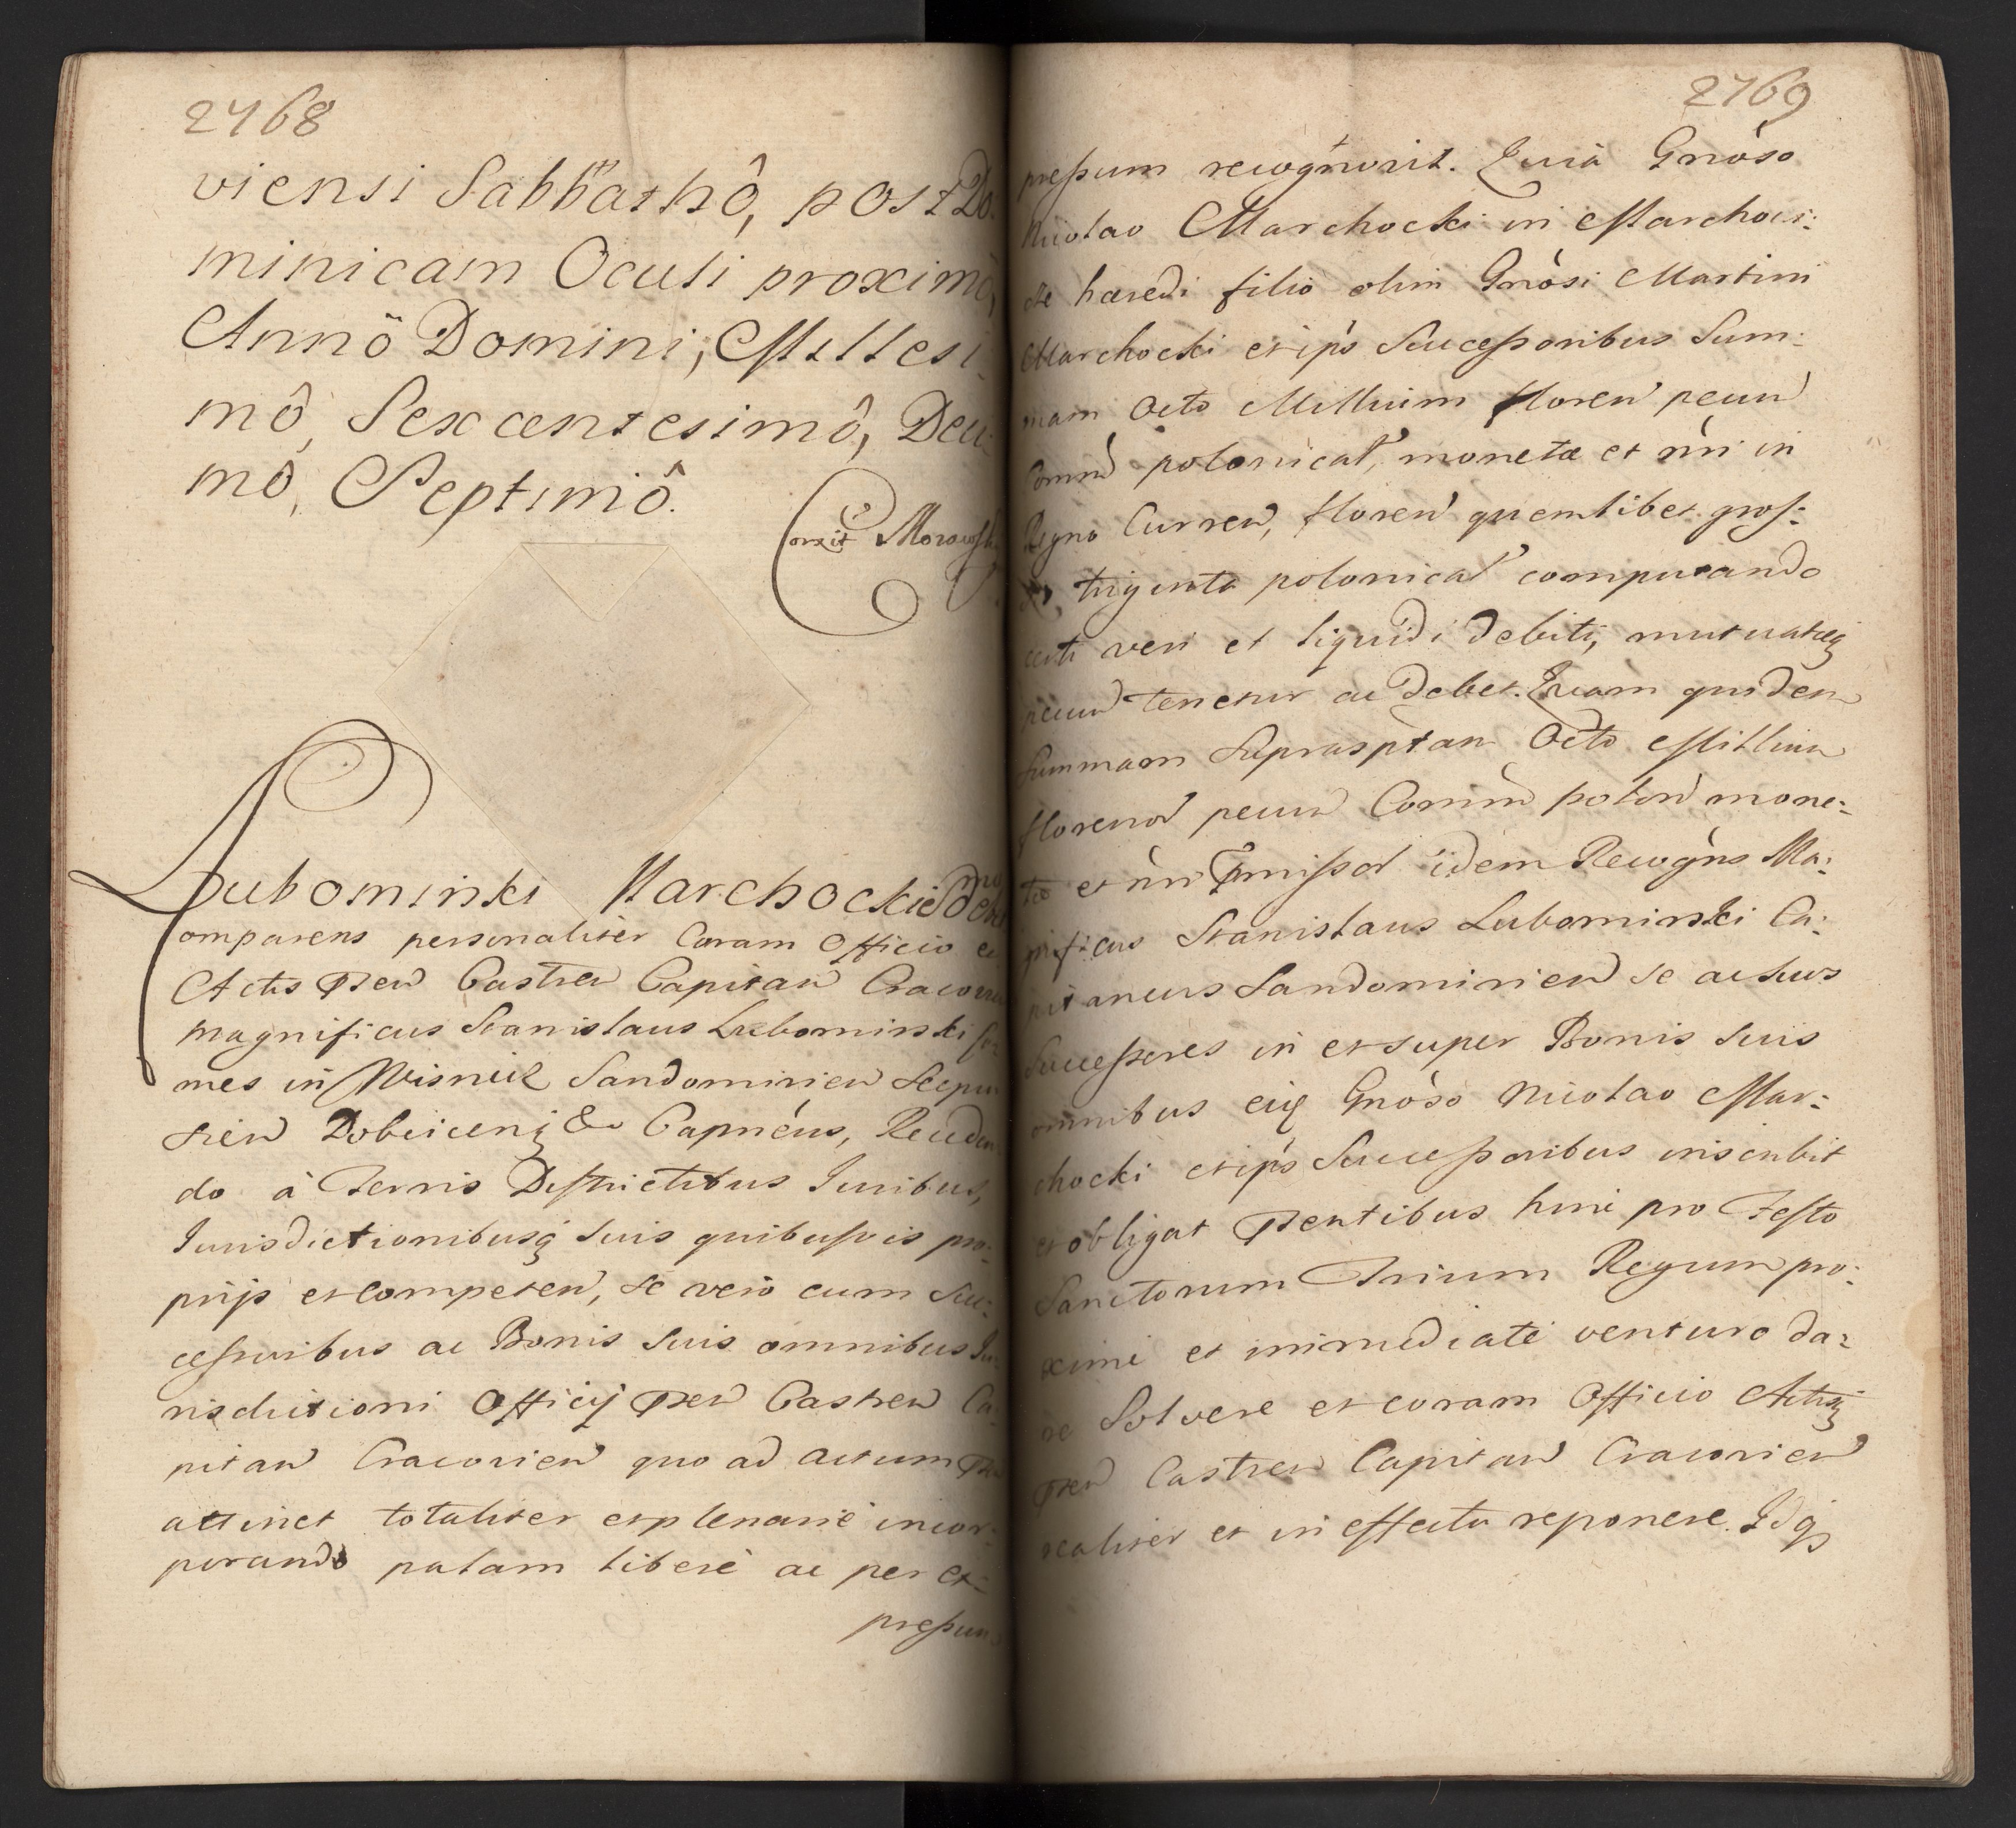 2768
viensi Sabbathô, post Do-
minicam Oculi proximô,
Annô Domini, Millesi-
mô, Sexcentesimô, Deci-
mô, Septimô.
Correxit Morawski
Lubomirski Marchockiego
Comparens personaliter Coram Officio et
Actis pñtibus Castreñ Capitañ Cracovieñ
magnificus Stanislaus Lubomirski Co-
mes in Wisnicz Sandomirieñ Scepu-
sieñ Dobcicenq; &c Capnéus, Receden-
do à Terris Districtibus Iuribus,
Iurisdictionibusq; suis quibusvis pro-
prijs et competeñ, se verò cum Suc-
cessoribus ac Bonis suis omnibus Iu-
risdictioni Officij pñ Castreñ Ca-
pitañ Cracovieñ quo ad actum pñ
attinet totaliter et plenariè incor-
porando palam liberè ac per ex-
pressum
2769
pressum recognovit. Quià Gnòso
Nicolao Marchocki in Marchoci-
ce hæredi filiò olim Gnòsi Martini
Marchocki et ip̀s Successoribus Sum-
mam Octo Millium floreñ pecuñ
Commũ polonical, monetæ et ǹri in
Regno Curreñ, floreñ quemlibet gros-
triginta polonical computando
certi veri et liquidi debiti, mutuatæq;
pecuñ tenetur ac debet. Quam quidem
Summam Suprasptam Octo Millium
florenoꝝ pecuñ Commũ poloñ mone-
tæ et ǹri pmissoꝝ idem Recogǹs Ma-
gnificus Stanislaus Lubomirski Ca-
pitaneus Sandomirieñ se ac suos
Successores in et super Bonis suis
omnibus eiq; Gnòso Nicolao Mar-
chocki et ip̀s Successoribus inscribit
et obligat pñtibus hinc pro Festo
Sanctorum Trium Regum pro-
ximè et immediatè venturo da-
re Solvere et coram Officio Actisq;
pñ Castreñ Capitañ Cracovieñ
realiter et in effectu reponere. Idq;